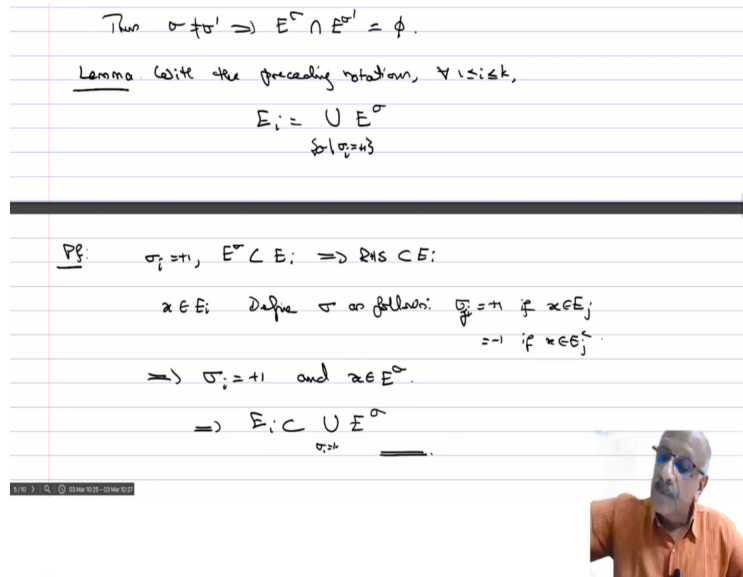 Thus σ ≠ σ' ⇒ E^σ ∩ E^σ' = φ.
Lemma With the preceding notations, ∀ 1≤i≤k,
E_i = ∪ E^σ
{σ|σ_i=+1}
Pf: σ_i=+1, E^σ ⊂ E_i ⇒ RHS ⊂ E_i
x ∈ E_i Define σ as follows: σ_j = +1 if x∈E_j
= -1 if x∈E_j^c.
⇒ σ_i = +1 and x∈ E^σ
⇒ E_i ⊂ ∪ E^σ
5/10 03 Mar 10:25 – 03 Mar 10:27